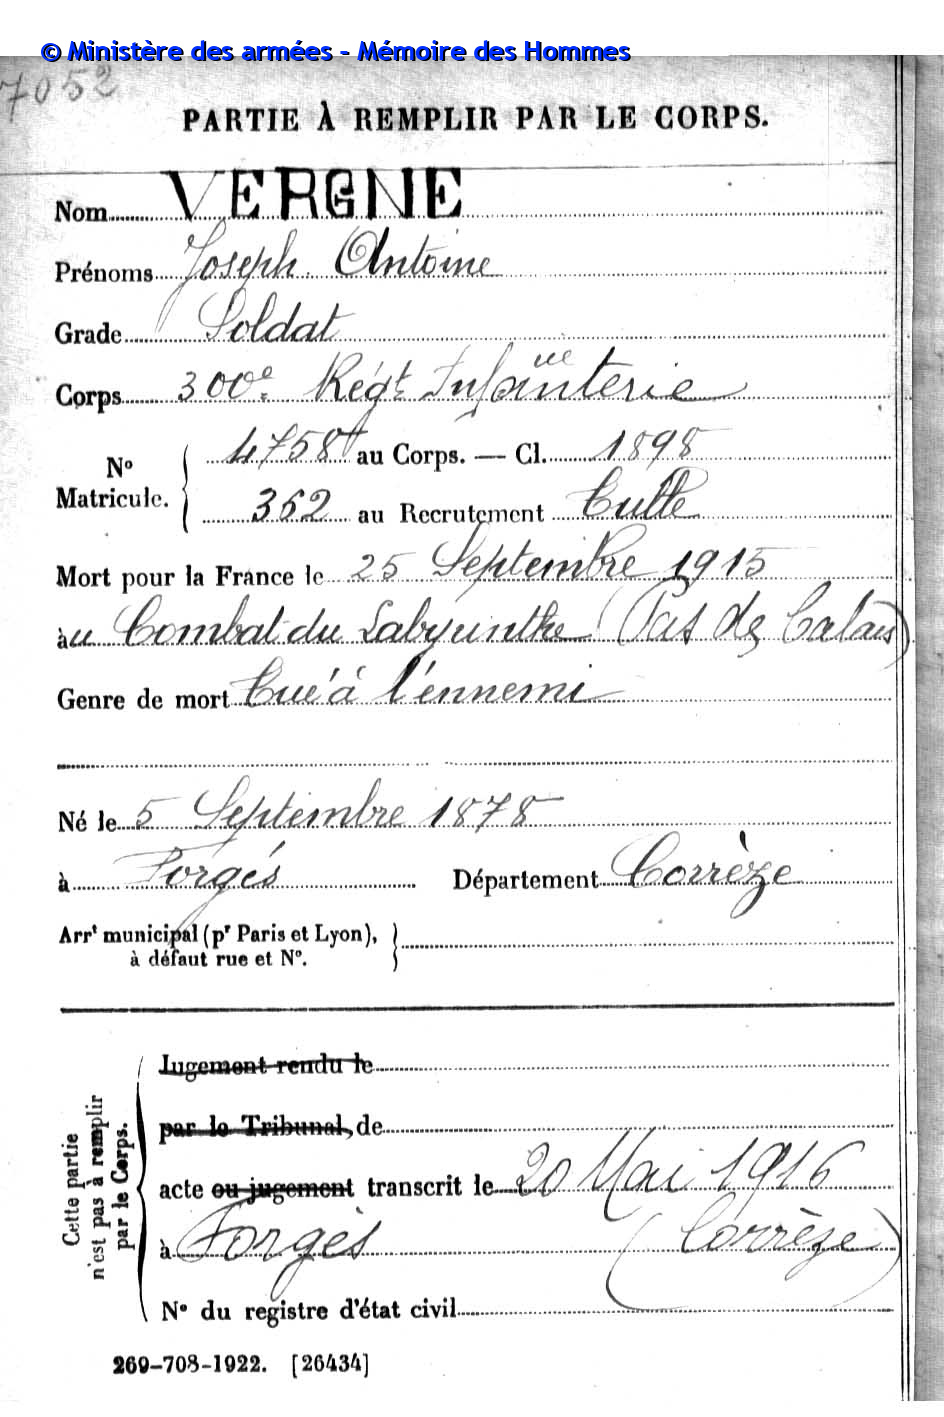 © Ministère des armées - Mémoire des Hommes
7052
PARTIE À REMPLIR PAR LE CORPS.
Nom VERGNE
Prénoms Joseph Antoine
Grade Soldat
Corps 300e Régt Infanterie
No Matricule. 4758 au Corps. — Cl. 1898
352 au Recrutement Tulle
Mort pour la France le 25 Septembre 1915
àu Combat du Labyrinthe (Pas de Calais)
Genre de mort Tué à l'ennemi
Né le 5 Septembre 1878
à Forgés Département Corrèze
Arrt municipal (pr Paris et Lyon),
à défaut rue et No.
Cette partie
n'est pas à remplir
par le Corps.
Jugement rendu le
par le Tribunal, de
acte ou jugement transcrit le 20 Mai 1916
à Forgès (Corrèze)
No du registre d'état civil
269-708-1922. [26434]